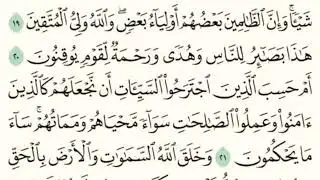 شَيْـًٔا ۚ وَإِنَّ ٱلظَّٰلِمِينَ بَعْضُهُمْ أَوْلِيَآءُ بَعْضٍ ۖ وَٱللَّهُ وَلِىُّ ٱلْمُتَّقِينَ ١٩
هَٰذَا بَصَٰٓئِرُ لِلنَّاسِ وَهُدًى وَرَحْمَةٌ لِّقَوْمٍ يُوقِنُونَ ٢٠
أَمْ حَسِبَ ٱلَّذِينَ ٱجْتَرَحُوا۟ ٱلسَّيِّـَٔاتِ أَن نَّجْعَلَهُمْ كَٱلَّذِينَ
ءَامَنُوا۟ وَعَمِلُوا۟ ٱلصَّٰلِحَٰتِ سَوَآءً مَّحْيَاهُمْ وَمَمَاتُهُمْ ۚ سَآءَ
مَا يَحْكُمُونَ ٢١ وَخَلَقَ ٱللَّهُ ٱلسَّمَٰوَٰتِ وَٱلْأَرْضَ بِٱلْحَقِّ